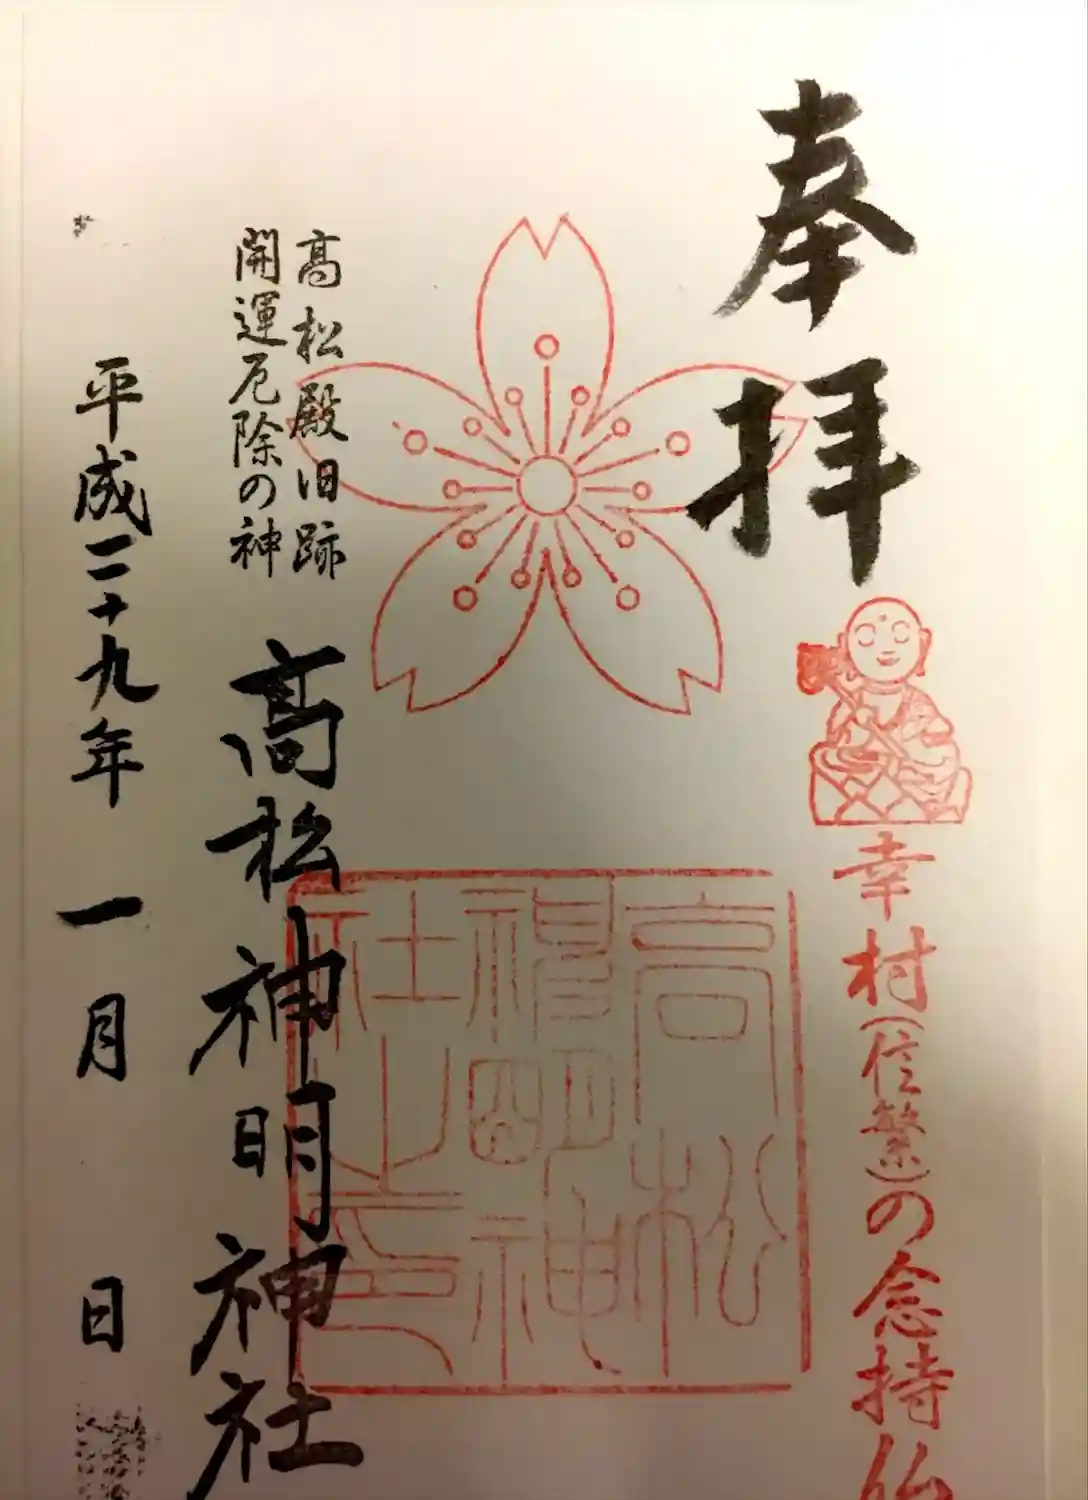 奉拝
幸村(信繁)の念持仏
高松殿旧跡
開運厄除の神
高松神明神社
平成二十九年 一月 日